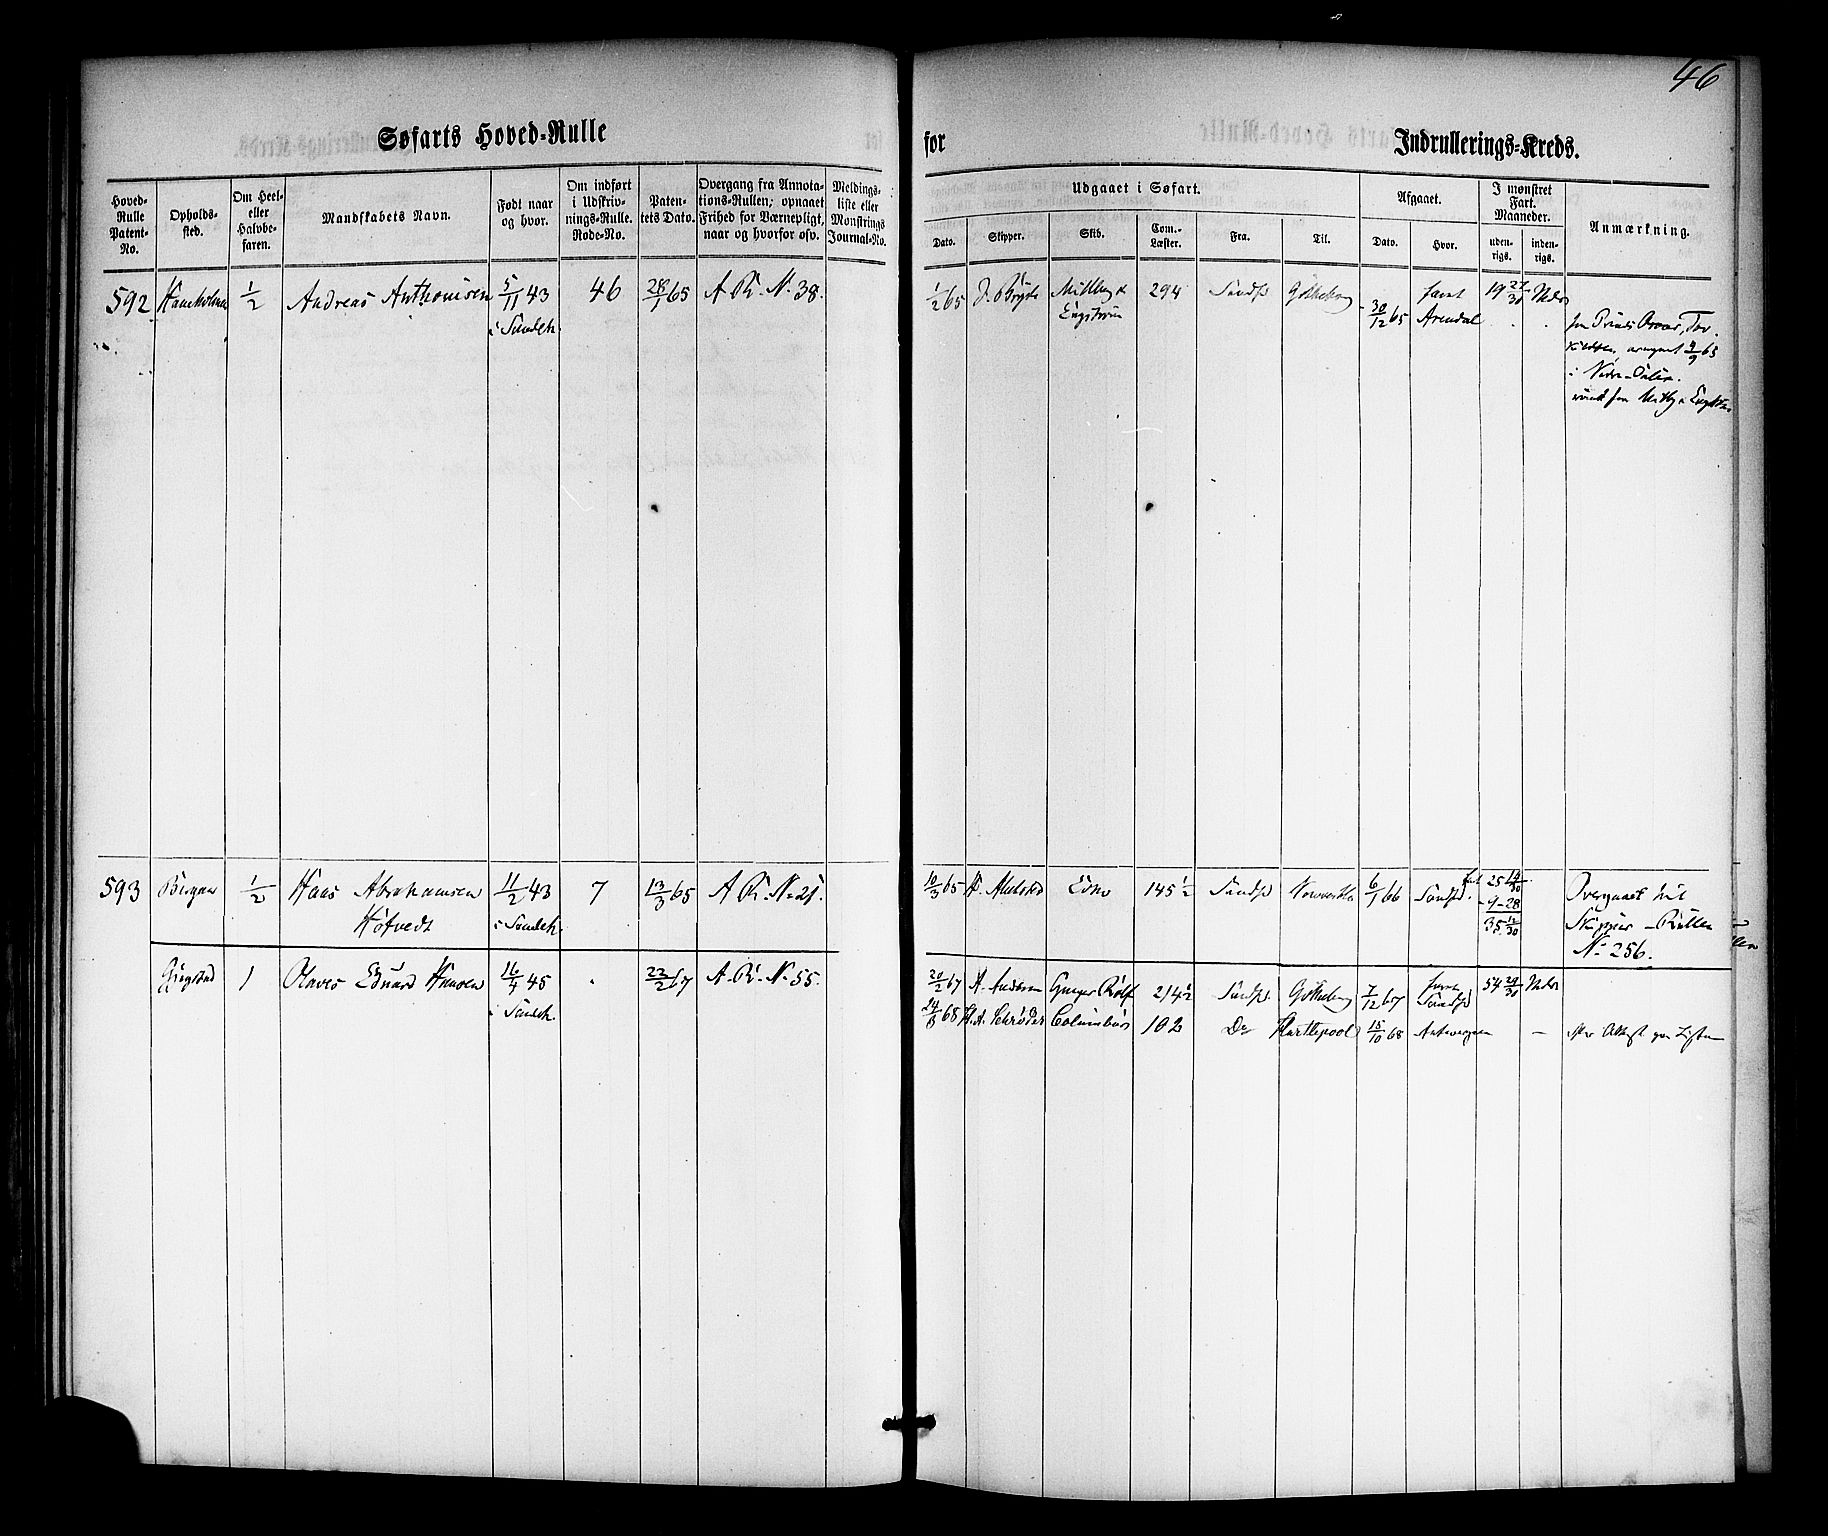 46
Søfarts Hoved-Rulle
for
Indrullerings-Kreds.
Hoved-Rulle Patent-No.
Opholds-sted.
Om Heel- eller Halvbe-faren.
Mandskabets Navn.
Født naar og hvor.
Om indført i Udskriv-nings-Rulle. Rode-No.
Paten-tets Dato.
Overgang fra Annota-tions-Rullen; opnaaet Frihed for Værnepligt, naar og hvorfor osv.
Meldings-liste eller Mønstrings Journal-No.
Udgaaet i Søfart.
Dato.
Skipper.
Skib.
Com.-Læster.
Fra.
Til.
Afgaaet.
Dato.
Hvor.
I mønstret Fart. Maaneder.
uden-rigs.
inden-rigs.
Anmærkning.
592 1/2 Andreas Anthonisen 5/11 43 46 28/1 65 A R. N. 38. 1/2 65 294 Sandfd Gøtheborg 30/12 65 Arendal 19 27/30
i Sandeh.
593 Bergan 1/2 Hans Abrahamsen 11/2 43 7 13/3 65 A R. N. 21. 10/3 65 Echo 145 1/2 Sandfd 6/1 66 Sandfd. 25 14/30
Høtvedt i Sandeh. 9-28
35 12/30
Overgaaet til
Skipper-Rullen
No 256.
1 Olaves Eduard Hansen 16/4 45 23/2 67 A. R. N. 55. 20/2 67 A. Andersen Ganger Rolf 214 1/2 Sandfd. Gøtheborg 7/12 67 Sandfd 54 29/30
i Sandeh.
68 H. A. Schrøder Columbus 102 Do Hartlepool 15/10 68 Antwerpen —